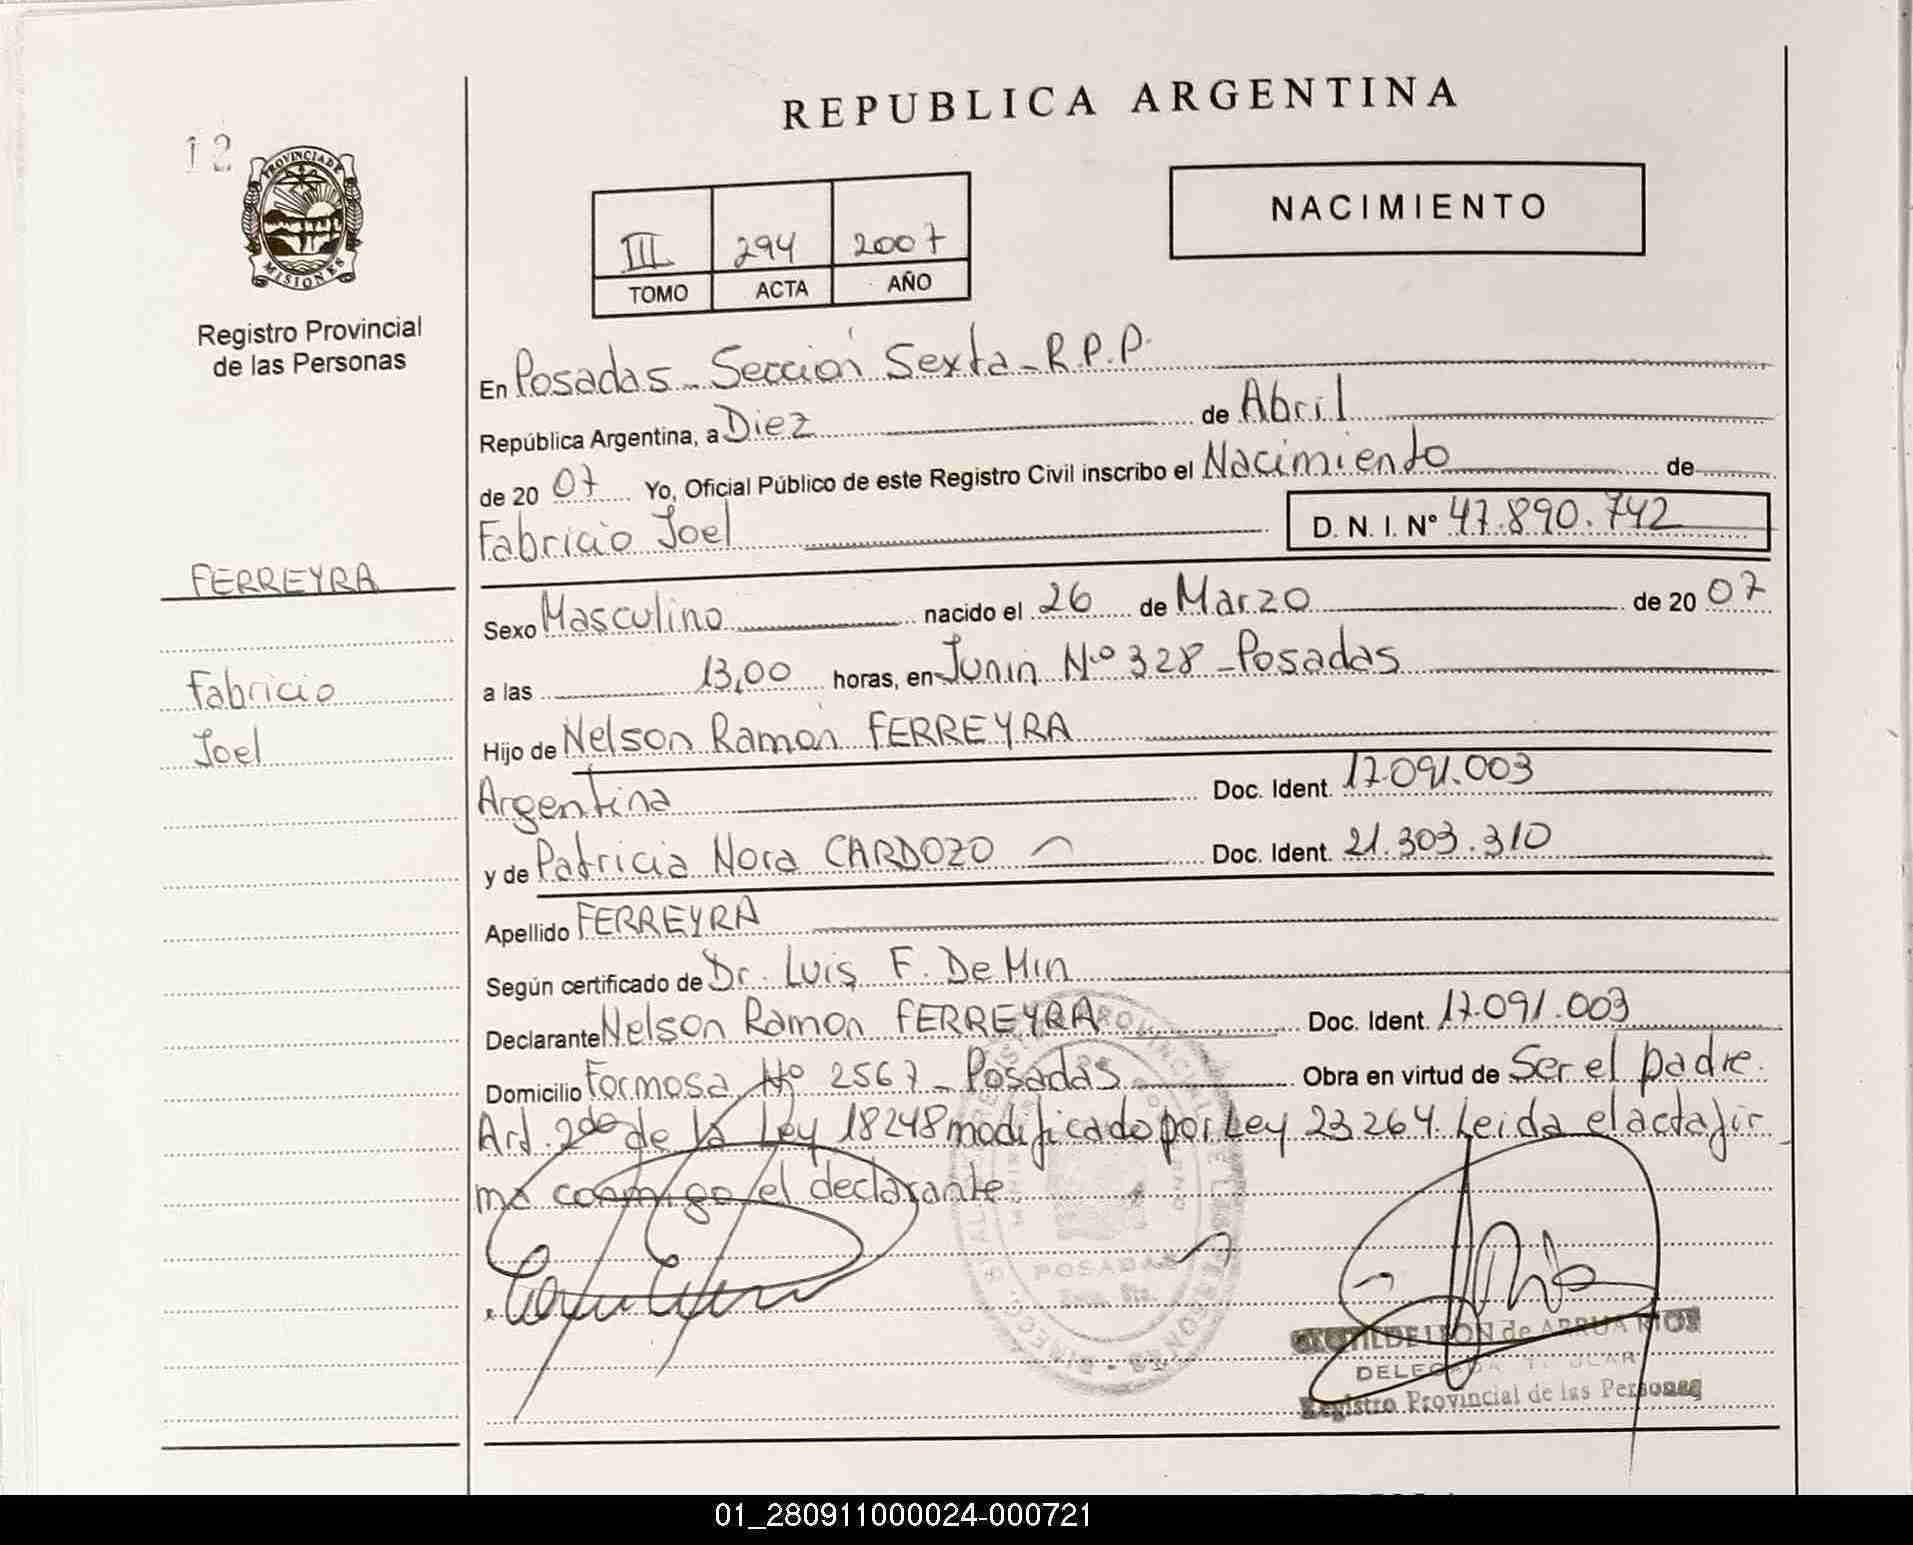 REPUBLICA ARGENTINA
12
PROVINCIA DE
MISIONES
Registro Provincial
de las Personas
III 294 2007
TOMO ACTA AÑO
NACIMIENTO
En Posadas - Sección Sexta - R.P.P.
República Argentina, a Diez de Abril
de 20 07 Yo, Oficial Público de este Registro Civil inscribo el Nacimiento de
Fabricio Joel D. N. I. Nº 47.890.742
FERREYRA
Fabricio
Joel
Sexo Masculino nacido el 26 de Marzo de 20 07
a las 13,00 horas, en Junin Nº 328 - Posadas
Hijo de Nelson Ramón FERREYRA
Argentina Doc. Ident. 17.091.003
y de Patricia Nora CARDOZO Doc. Ident. 21.303.310
Apellido FERREYRA
Según certificado de Dr. Luis F. De Min
Declarante Nelson Ramon FERREYRA Doc. Ident. 17.091.003
Domicilio Formosa Nº 2567 - Posadas Obra en virtud de Ser el padre.
Art. 2do de la Ley 18248 modificado por Ley 23264. Leida el acta fir
ma conmigo el declarante
POSADAS
de ARRUA RIOS
DELEGADA TITULAR
Registro Provincial de las Personas
01_280911000024-000721